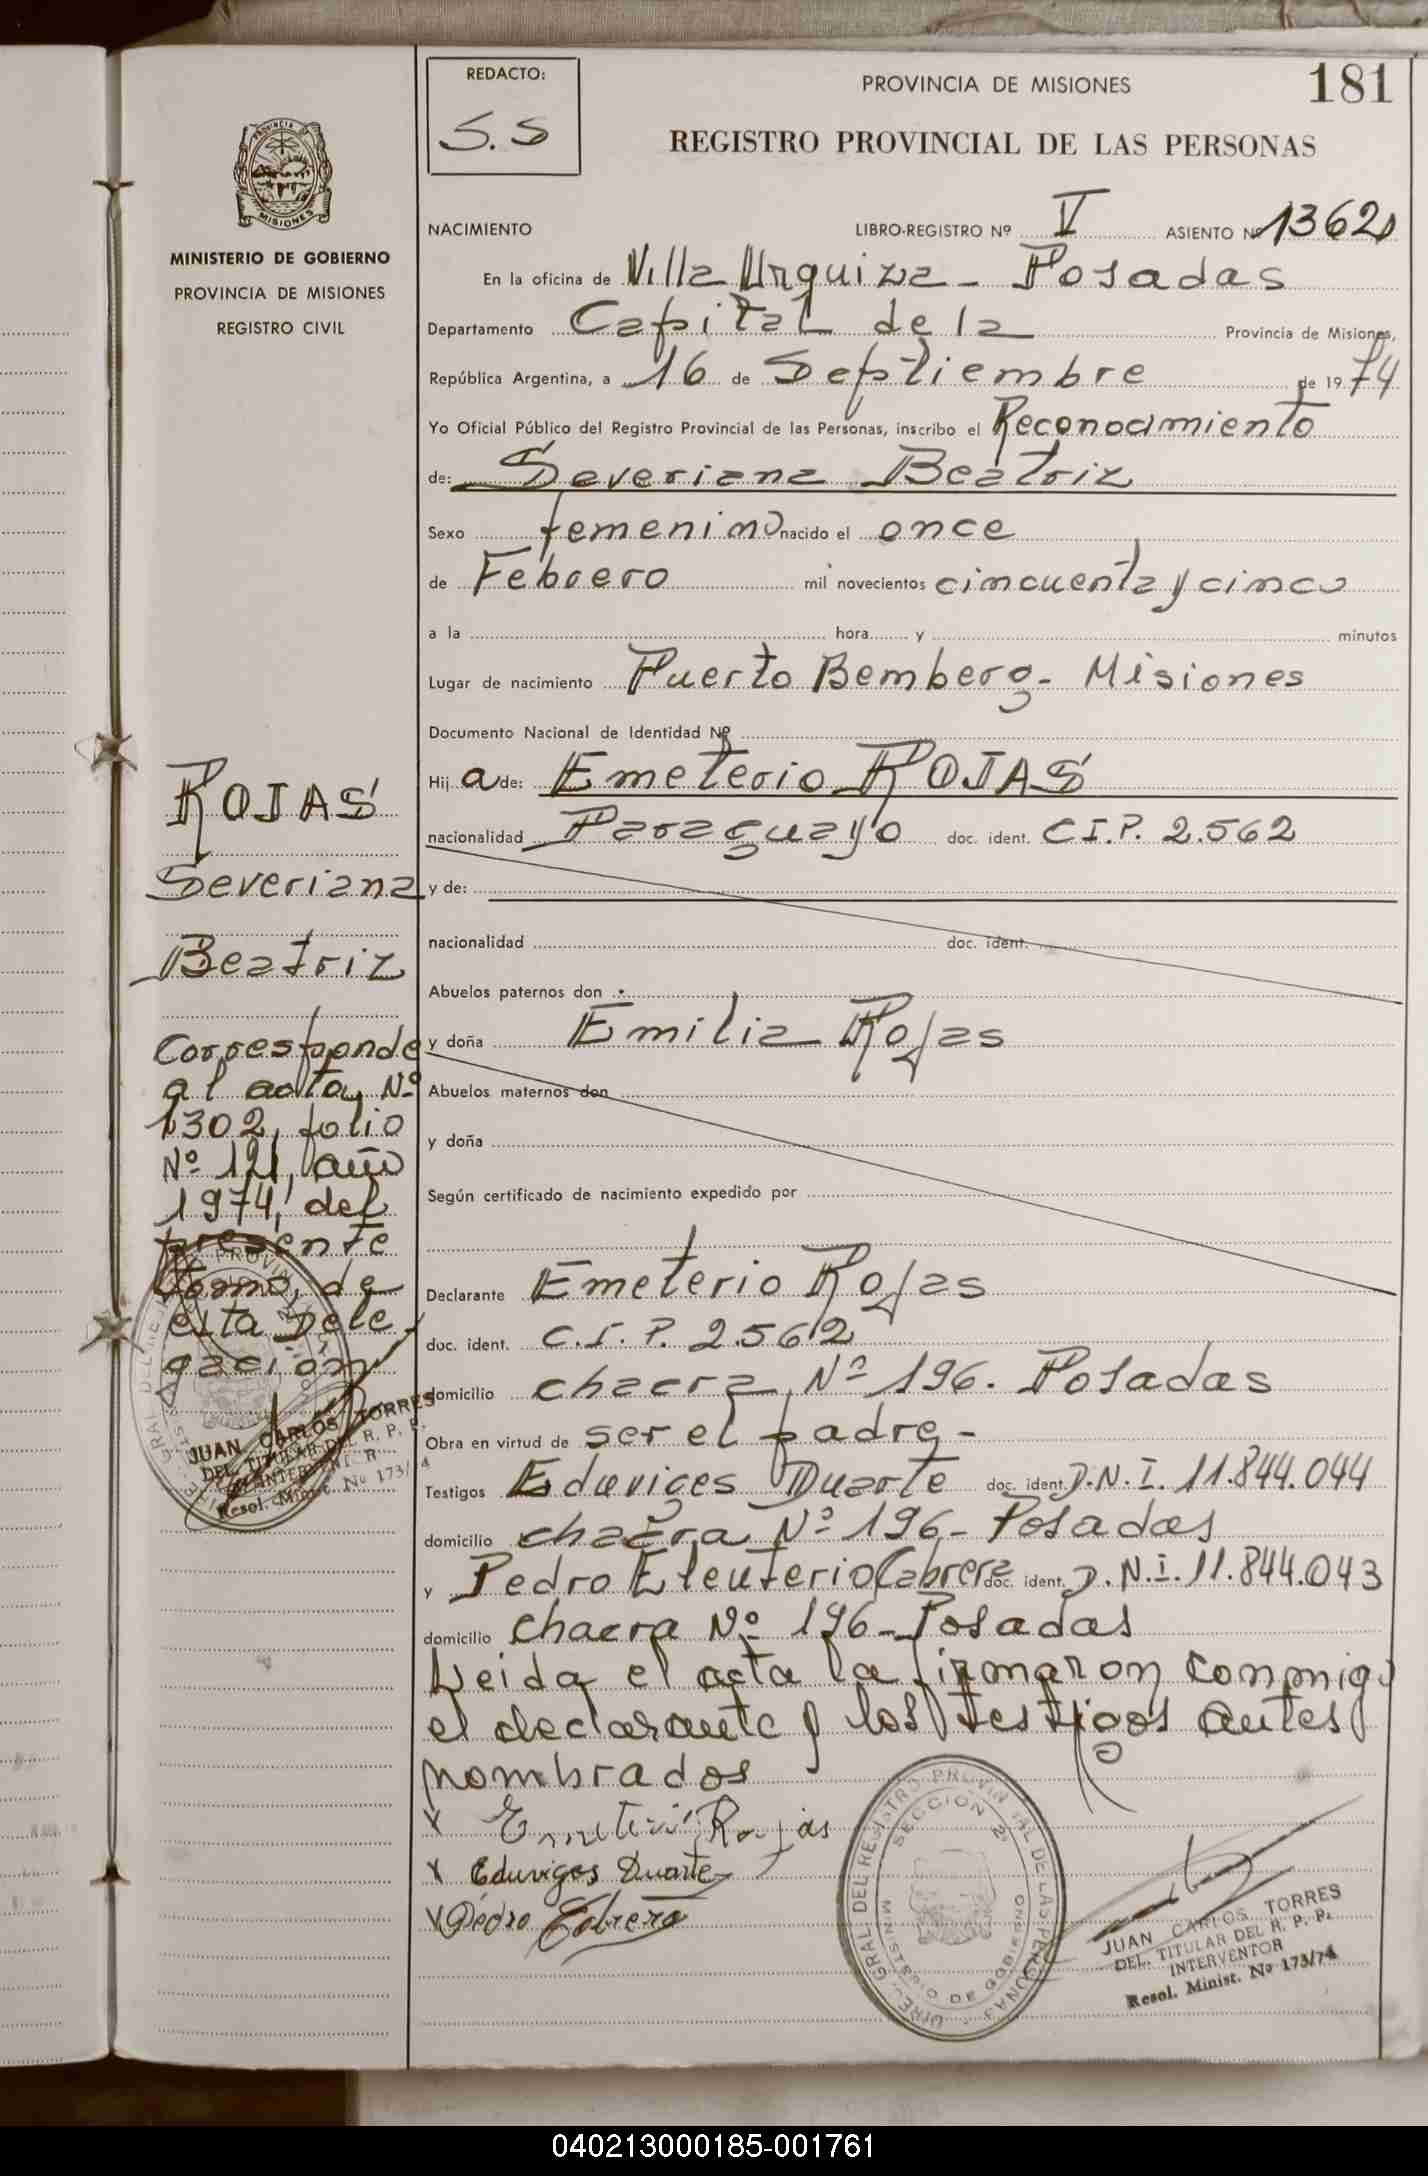 REDACTO:
S.S
PROVINCIA DE MISIONES
181
REGISTRO PROVINCIAL DE LAS PERSONAS
PROVINCIA
MISIONES
MINISTERIO DE GOBIERNO
PROVINCIA DE MISIONES
REGISTRO CIVIL
NACIMIENTO LIBRO-REGISTRO Nº V ASIENTO Nº 1362
En la oficina de Villa Urquiza - Posadas
Departamento Capital de la Provincia de Misiones,
República Argentina, a 16 de Septiembre de 1974
Yo Oficial Público del Registro Provincial de las Personas, inscribo el Reconocimiento
de: Severiana Beatriz
Sexo femenino nacido el once
de Febrero mil novecientos cincuenta y cinco
a la hora y minutos
Lugar de nacimiento Puerto Bemberg - Misiones
Documento Nacional de Identidad Nº
Hij a de: Emeterio ROJAS
nacionalidad Paraguayo doc. ident. C.I.P. 2.562
y de:
nacionalidad doc. ident.
Abuelos paternos don
y doña Emilia Rojas
Abuelos maternos don
y doña
Según certificado de nacimiento expedido por
Declarante Emeterio Rojas
doc. ident. C.I.P. 2.562
domicilio chacra Nº 196. Posadas
Obra en virtud de ser el padre -
Testigos Eduviges Duarte doc. ident. D.N.I. 11.844.044
domicilio chacra Nº 196 - Posadas
y Pedro Eleuterio Cabrera doc. ident. D.N.I. 11.844.043
domicilio chacra Nº 196 - Posadas
Leida el acta la firmaron conmigo
el declarante y los testigos antes
nombrados
x Emeterio Rojas
x Eduviges Duarte
x Pedro Cabrera
ROJAS
Severiana
Beatriz
Corresponde
al acta Nº
1302, folio
Nº 121, año
1974, del
presente
tomo, de
esta Dele
gación
JUAN CARLOS TORRES
DEL. TITULAR DEL R. P. P.
INTERVENTOR
Resol. Minist. No 173/74
DIREC. GRAL. DEL REGISTRO PROVINCIAL DE LAS PERSONAS
SECCION 2ª
MINISTERIO DE GOBIERNO
JUAN CARLOS TORRES
DEL. TITULAR DEL R. P. P.
INTERVENTOR
Resol. Minist. No 173/74
040213000185-001761